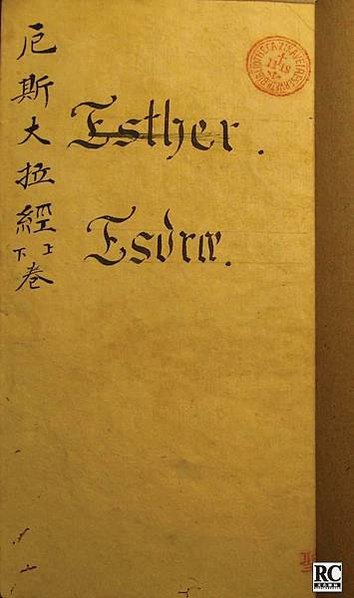 厄斯大拉經上下卷
Esther.
Esdræ.
RC